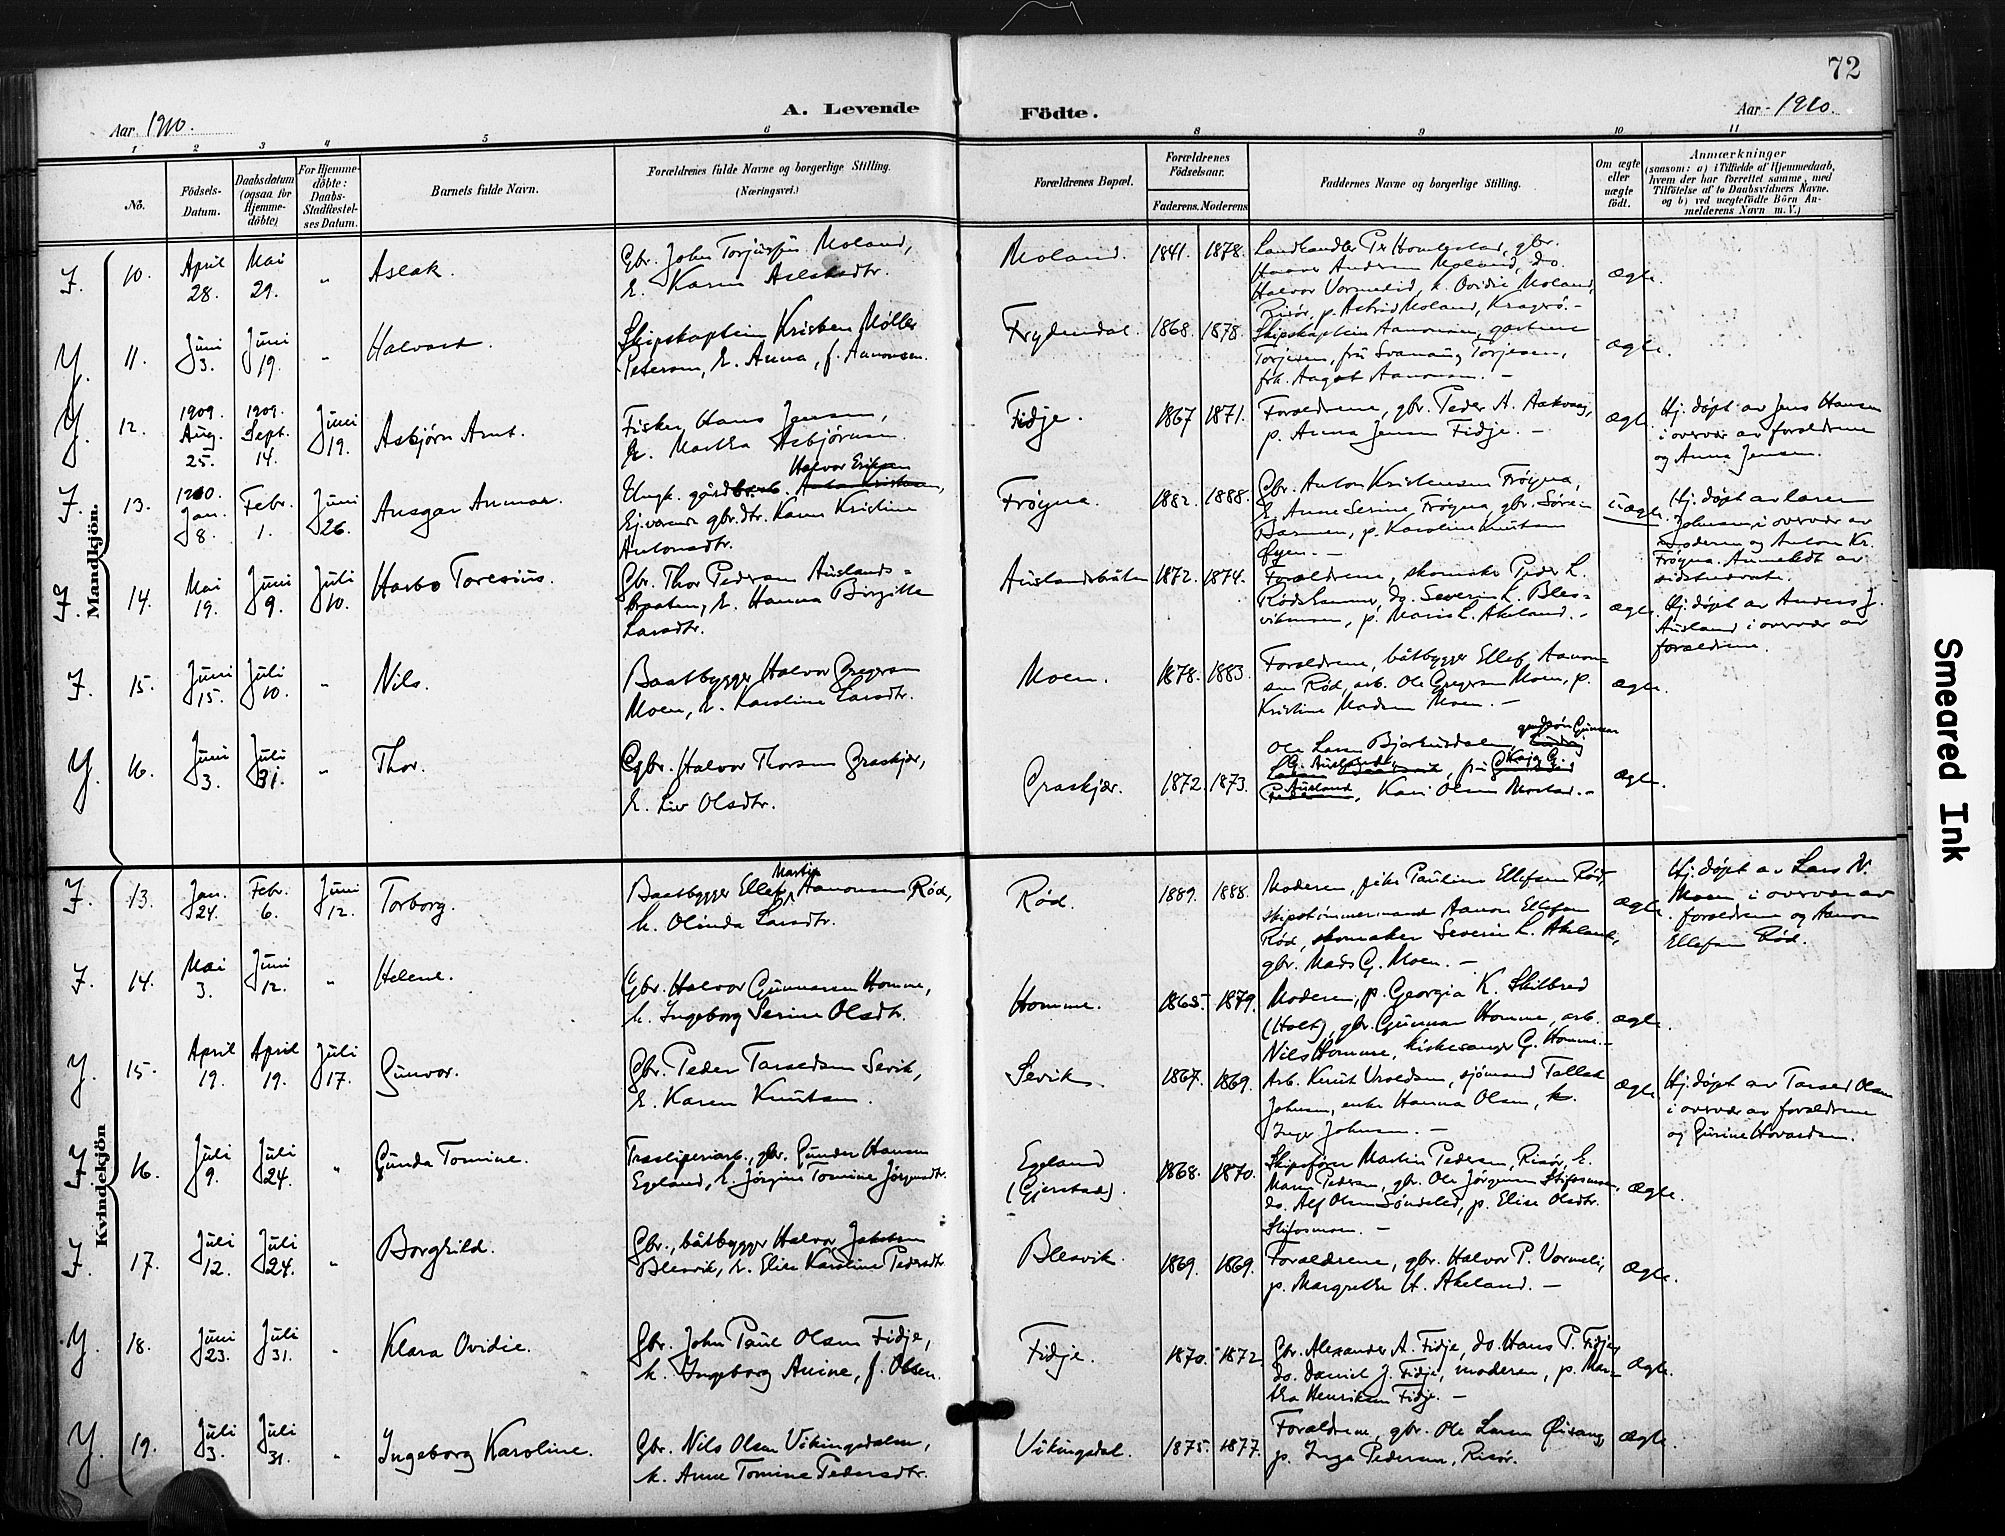 72
Aar 1910.
A. Levende
Födte.
Aar 1910.
1 2 3 4 5 6 8 9 10 11
No.
Födsels-
Datum.
Daabsdatum
(ogsaa for
Hjemme-
döbte)
For Hjemme-
döbte:
Daabs-
Stadfæstel-
ses Datum.
Barnets fulde Navn.
Forældrenes fulde Navne og borgerlige Stilling.
(Næringsvei.)
Forældrenes Bopæl.
Forældrenes
Födselsaar.
Faderens. Moderens
Faddernes Navne og borgerlige Stilling.
Om ægte
eller
uægte
födt.
Anmærkninger
(saasom: a) i Tilfælde af Hjemmedaab,
hvem der har forrettet samme, med
Tilföielse af to Daabsvidners Navne.
og b) ved uægtefödte Börn An-
melderens Navn m. V.)
Mandkjön.
F. 10. April 28. Mai 29. " Aslak.
Gbr. John Torjusson Moland,
h. Karen Aslaksdtr.
Moland. 1841. 1878.
Landhandler Pr Homlestad, gbr.
Haaver Andersen Moland, do.
Halvor Vormelid, h. Ovidie Moland,
Risør, p. Astrid Moland, Kragerö. -
ægte.
Y. 11. Juni 3. Juni 19. " Halvard.
Skipskaptein Kristen Møller
Petersen, h. Anna, f. Aanonsen.
Frydendal. 1868. 1878.
Skipskaptein Aanonsen, gartner
Torjesen, fru Svanaug Torjesen,
frk. Aagot Aanonsen. -
ægte.
Y. 12. 1909. Aug. 25. 1909. Sept. 14. Juni 19. Asbjörn Arnt.
Fisker Hans Jensen,
h. Martha Asbjörnsen.
Fidje. 1867 1871.
Foraeldrene, gbr. Peder A. Aakvaag,
p. Anna Jensen Fidje. -
ægte
Hj. døpt av Jens Hansen
i overvær av foraeldrene
og Anna Jensen.
F. 13. 1910. Jan. 8. Febr. 1. Juni 26. Ansgar Anmar.
Halvor Eriksen
Ungk. gårdbr.arb.
Ej.værende gbr.dtr. Karen Kristine
Antonsdtr.
Frøyna. 1882. 1888.
Gbr. Anton Kristensen Frøyna,
h. Anne Serine Frøyna, gbr. Søren
Barmen, p. Karoline Knutsen
Øyen. -
uægte.
Hj. døpt av Laren
Johnsen i overvær av
moderen og Anton Kr.
Frøyna. Anmeldt av
sidstnævnte.
F. 14. Mai 19. Juni 9. Juli 10. Harbo Toresius.
Gbr. Thor Pedersen Auslands=
braaten, h. Hanna Birgitte
Larsdtr.
Auslandsbråten 1872. 1874.
Foraeldrene, skomaker Peder L.
Rødshammer, do. Severin L. Bles=
vikmoen, p. Maris L. Akeland. -
ægte
Hj. døpt av Anders J.
Ausland i overvær av
foraeldrene.
F. 15. Juni 15. Juli 10. " Nils.
Baatbygger Halvor Gregersen
Moen, h. Karoline Larsdtr.
Moen. 1878. 1883.
Foraeldrene, båtbygger Ellef Aanon-
sen Rød, arb. Ole Gregersen Moen, p.
Kristine Madsen Moen. -
ægte.
Y. 16. Juni 3. Juli 31. " Thor.
Gbr. Halvor Thorsen Graskjær,
h. Liv Olsdtr.
Graskjær. 1872. 1873.
Ole Larsen Bjorkusdalen, gaardbr.sön Gunnar
G. Ausland, fru Kaja G.
Ausland, Kari Olsen Mostad. -
ægte.
Kvindekjön
F. 13. Jan. 24. Febr. 6. Juni 12. Torborg.
Martin
Baatbygger Ellef Aanonsen Rød,
h. Olinda Larsdtr.
Rød. 1889. 1888.
Moderen, pike Pauline Ellefsen Rød,
skipstömmermand Aanon Ellefsen
Rød, skomaker Severin L. Akeland,
gbr. Mads G. Moen. -
ægte
Hj. døpt av Lars N.
Moen i overvær av
foraeldrene og Aanon
Ellefsen Rød.
F. 14. Mai 3. Juni 12. " Helene.
Gbr. Halvor Gunnarsen Homme,
h. Ingeborg Serine Olsdtr.
Homme. 1865. 1879.
Moderen, p. Georgia K. Skilbred
(Holt), gbr. Gunnar Homme, arb.
Nils Homme, kirkesanger G. Homme. -
ægte.
Y. 15. April 19. April 19. Juli 17. Gunvor.
Gbr. Peder Tarjedsen Sevik,
h. Karen Knutsen.
Sevik. 1867. 1869.
Arb. Knut Vroldsen, sjömand Tallak
Johnsen, enke Hanna Olsen, h.
Inger Johnsen. -
ægte
Hj. døpt av Tarjed Olsen
i overvær av foraeldrene
og Gurine Hovardsen.
F. 16. Juli 9. Juli 24. " Gunda Tomine.
Træsliperiarb., gbr. Gunder Hansen
Egeland, h. Jörgine Tomine Jörgensdtr.
Egeland
(Gjerstad). 1868. 1870.
Skipsfører Martin Pedersen, Risør, h.
Maren Pedersen, gbr. Ole Jörgensen Stifosmoen,
do. Alf Olsen Söndeled, p. Elise Olsdtr.
Stifosmoen -
ægte.
F. 17. Juli 12. Juli 24. " Borghild.
Gbr., båtbygger Halvor Jakobsen
Blesvik, h. Elise Karoline Pedersdtr.
Blesvik. 1869. 1869.
Foraeldrene, gbr. Halvor P. Vormeli,
p. Margrethe H. Akeland. -
ægte.
Y. 18. Juni 23. Juli 31. " Klara Ovidie.
Gbr. John Paul Olsen Fidje,
h. Ingeborg Anine, f. Olsen.
Fidje. 1870. 1872.
Gbr. Alexander A. Fidje, do. Hans P. Fidje,
do. Daniel J. Fidje, moderen, p. Mar-
tha Henriksen Fidje. -
ægte.
Y. 19. Juli 3. Juli 31. " Ingeborg Karoline.
Gbr. Nils Olsen Vikingsdalen,
h. Anne Tomine Pedersdtr.
Vikingsdal. 1875. 1877.
Foraeldrene, gbr. Ole Larsen Øisang,
p. Inga Pedersen, Risør.
ægte.
Smeared Ink